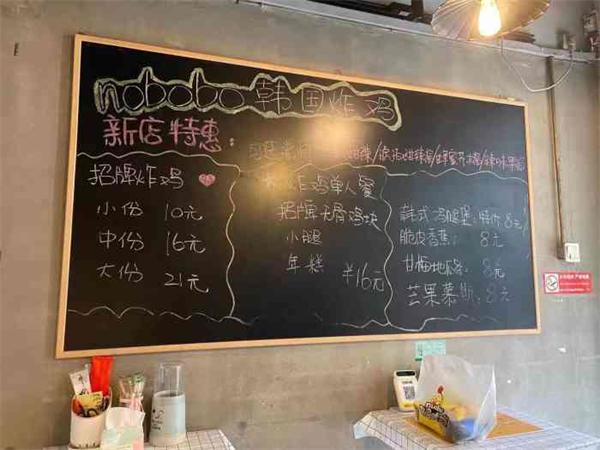 nobobo 韩国炸鸡
新店特惠:
招牌炸鸡
小份 10元
中份 16元
大份 21元
炸鸡单人餐
招牌无骨鸡块
小腿
年糕
¥16元
韩式鸡腿堡:特价8元
脆皮香蕉: 8元
甘梅地瓜条: 8元
芒果慕斯: 8元